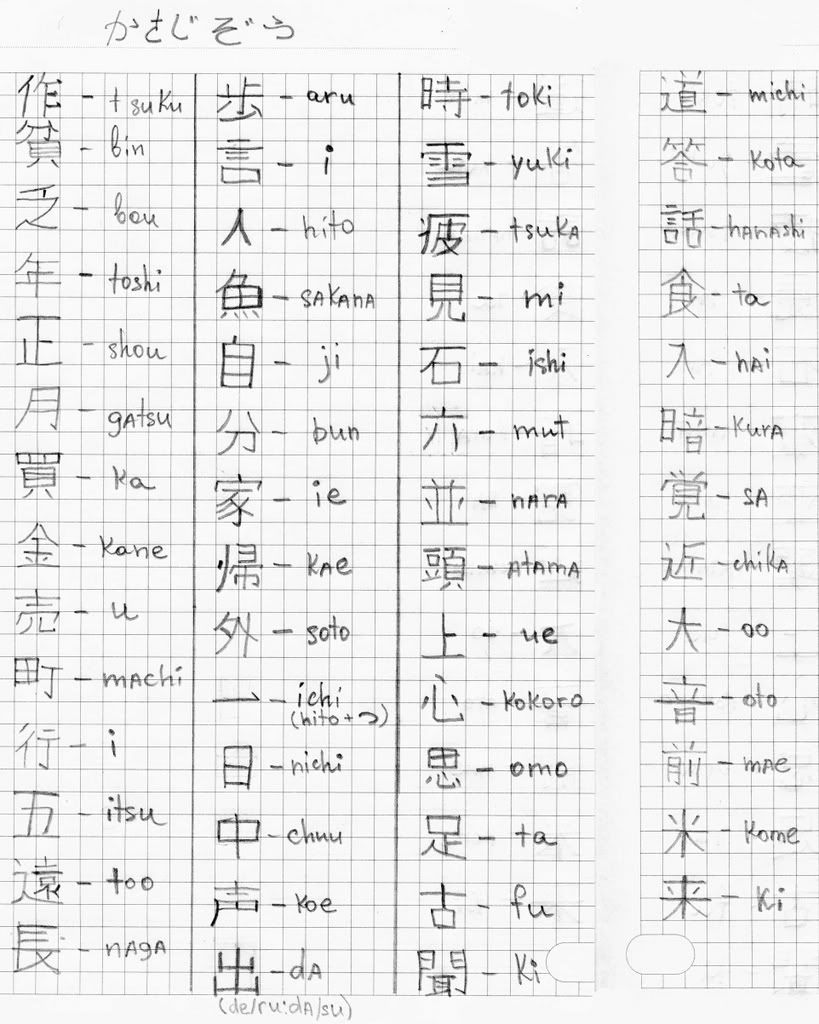 かさじぞう
作 - tsuku
貧 - bin
乏 - bou
年 - toshi
正 - shou
月 - gatsu
買 - ka
金 - kane
売 - u
町 - machi
行 - i
五 - itsu
遠 - too
長 - naga
歩 - aru
言 - i
人 - hito
魚 - sakana
自 - ji
分 - bun
家 - ie
帰 - kae
外 - soto
一 - ichi
(hito+つ)
日 - nichi
中 - chuu
声 - koe
出 - da
(de/ru:da/su)
時 - toki
雪 - yuki
疲 - tsuka
見 - mi
石 - ishi
六 - mut
並 - nara
頭 - atama
上 - ue
心 - kokoro
思 - omo
足 - ta
古 - fu
聞 - ki
道 - michi
答 - kota
話 - hanashi
食 - ta
入 - hai
暗 - kura
覚 - sa
近 - chika
大 - oo
音 - oto
前 - mae
米 - kome
来 - ki